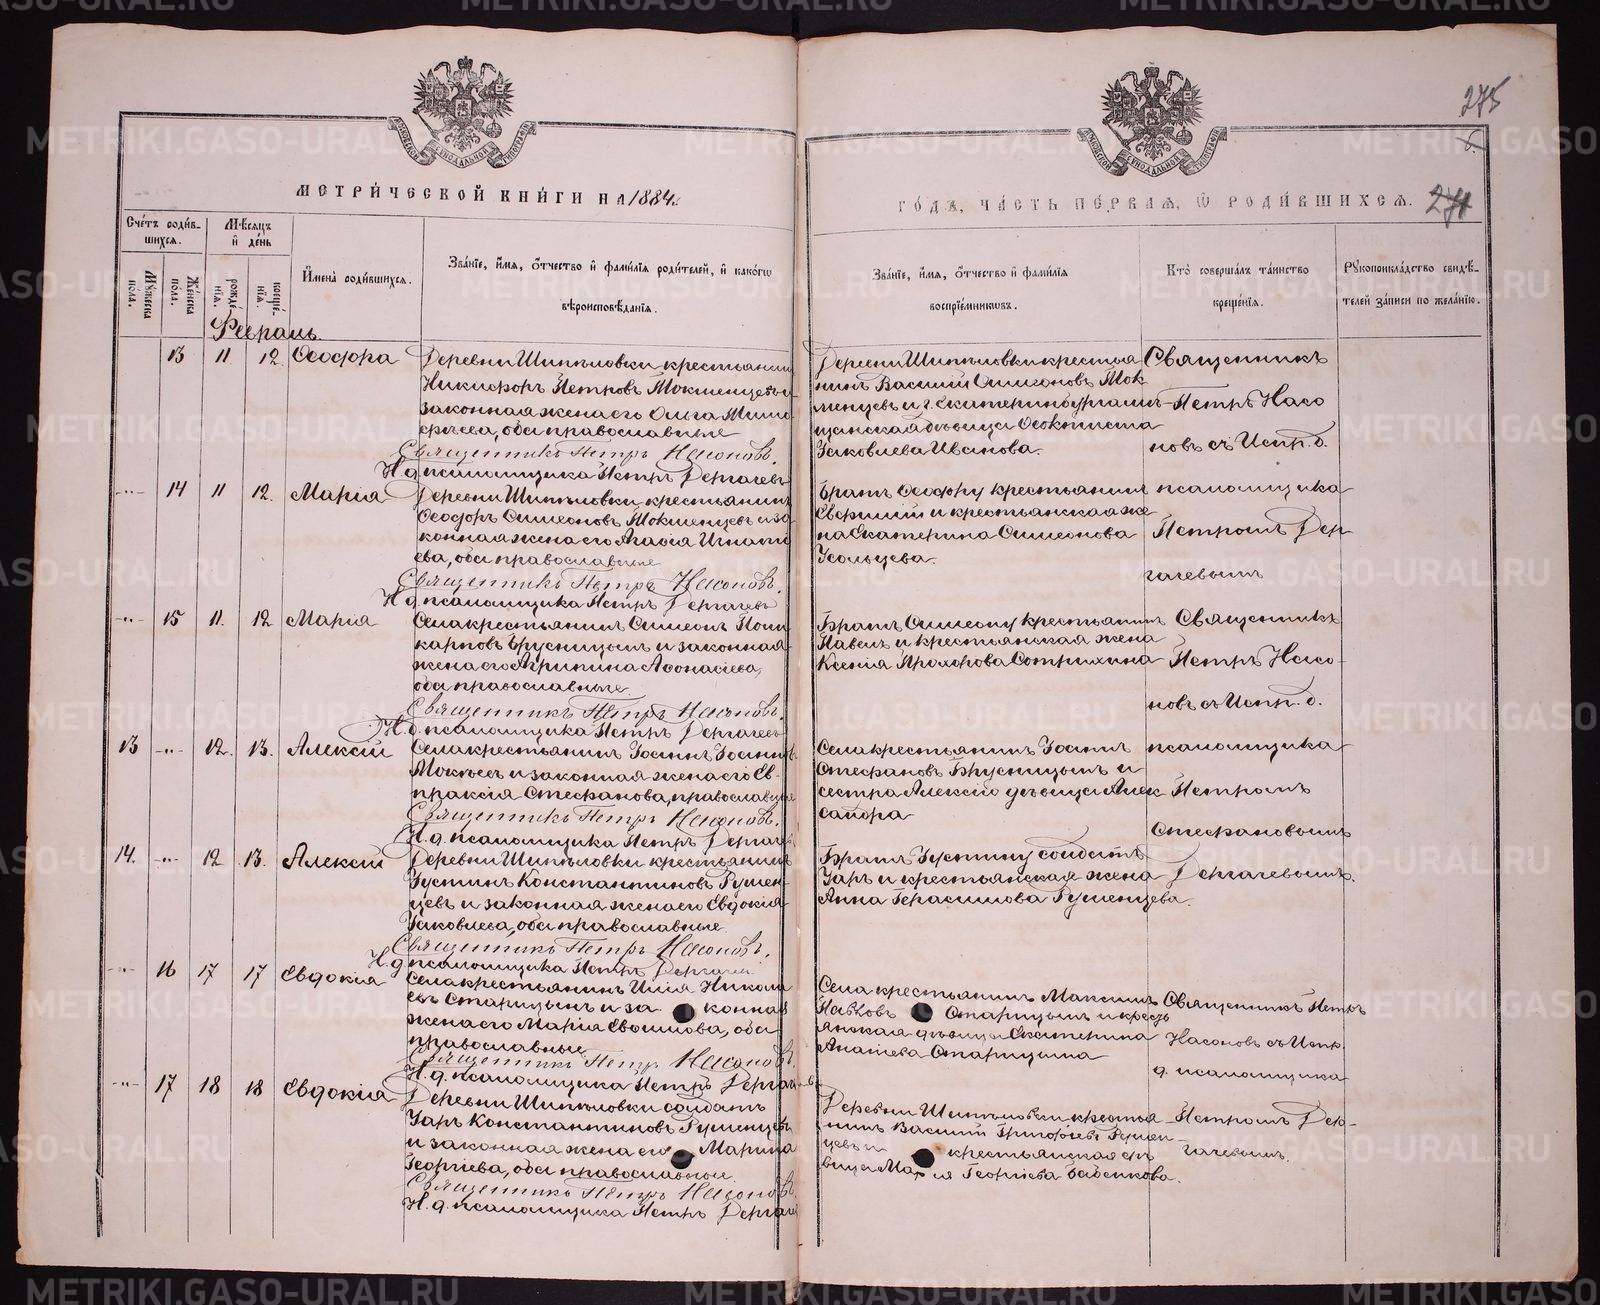 275
МЕТРИ́ЧЕСКОЙ КНИ́ГИ НА 1884
ГО́ДЪ, ЧА́СТЬ ПЕ́РВАЯ, Ѡ РОДИ́ВШИХСЯ. 271
Сче́тъ роди́в-
шихся.
Мѣсяцъ
и҆ де́нь
Мꙋ́жеска
по́ла.
Же́нска
по́ла.
рожде́-
нїя.
креще́-
нїя.
И҆мена̀ роди́вшихся.
Зва́нїе, и҆́мя, ѻ҆́тчество и҆ фами́лїя роди́телей, и҆ како́гѡ
вѣроисповѣ́данїя.
Зва́нїе, и҆́мя, ѻ҆́тчество и҆ фами́лїя
воспрїе́мниковъ.
Кто̀ соверша́лъ та́инство
креще́нїя.
Рꙋкоприкла́дство свидѣ́-
телей за́писи по жела́нїю.
Февраль.
13 11 12. Ѳеофра
Деревни Шипѣловки крестьянинъ
Никифоръ Петровъ Мокшенцевъ и
законная жена его Ольга
оба православные
Священникъ Петръ Насоновъ.
И д псаломщика Петръ Дергачевъ
Деревни Шипѣловки крестья
нинъ Василій Симеоновъ Мок
шенцевъ и г. Екатеринбурга
дѣвица Ѳеоктиста
Яковлева Иванова.
Священникъ
Петръ Насо
новъ съ Испр. д.
-"- 14 11 12. Марія
Деревни Шипѣловки крестьянинъ
Ѳеодоръ Симеоновъ Мокшенцевъ и за
конная жена его Агафія Игнать
ева, оба православные
Священникъ Петръ Насоновъ.
И д. псаломщика Петръ Дергачевъ
Братъ Ѳеодору крестьянинъ
и крестьянская же
на Екатерина Симеонова
Усольцева.
псаломщика
Петромъ Дер
гачевымъ
-"- 15 11. 12 Марія
Села крестьянинъ Симеонъ Поли
карповъ Брусницынъ и законная
жена его Агрипина Аѳонасіева,
оба православные
Священникъ Петръ Насоновъ.
И. д. псаломщика Петръ Дергачевъ
Братъ Симеону крестьянинъ
Павелъ и крестьянская жена
Ксенія Прохорова
Священникъ
Петръ Насо-
новъ съ Испр. д.
13 -"- 12. 13. Алексій
Села крестьянинъ Іоаннъ Іоанновъ
и законная жена его Ев-
праксія Стефанова, православные
Священникъ Петръ Насоновъ.
И. д. псаломщика Петръ Дергачевъ
Села крестьянинъ Іоаннъ
Стефановъ Брусницынъ и
сестра Алексію дѣвица Алек
сандра
псаломщика
Петромъ
Стефановымъ
14. -"- 12 13. Алексій
Деревни Шипѣловки крестьянинъ
Іустинъ Константиновъ Румен-
цевъ и законная жена его Евдокія
Яковлева, оба православные
Священникъ Петръ Насоновъ.
И. д псаломщика Петръ Дергачевъ
Братъ Іустину солдатъ
Уаръ и крестьянская жена
Анна Герасимова Руменцева.
Дергачевымъ.
-"- 16 17 17 Евдокія
Села крестьянинъ Илія Никола
евъ Старицынъ и за конная
жена его Марія оба
православные
Священникъ Петръ Насоновъ.
И. д. псаломщика Петръ Дергачевъ
Села крестьянинъ Максимъ
Старицынъ и крестья
янская дѣвица Екатерина
Старицына
Священникъ Петръ
Насоновъ съ Испр.
д. псаломщика
-"- 17 18 18 Евдокія
Деревни Шипѣловки солдатъ
Уаръ Константиновъ Руменцевъ
и законная жена его Марина
Георгіева, оба православные.
Священникъ Петръ Насоновъ
И. д. псаломщика Петръ Дергачевъ
Деревни Шипѣловки крестья
нинъ Василій Григорьевъ Румен
цевъ и крестьянская дѣ
вица Марія Георгіева Бабенкова.
Петромъ Дер-
гачевымъ.